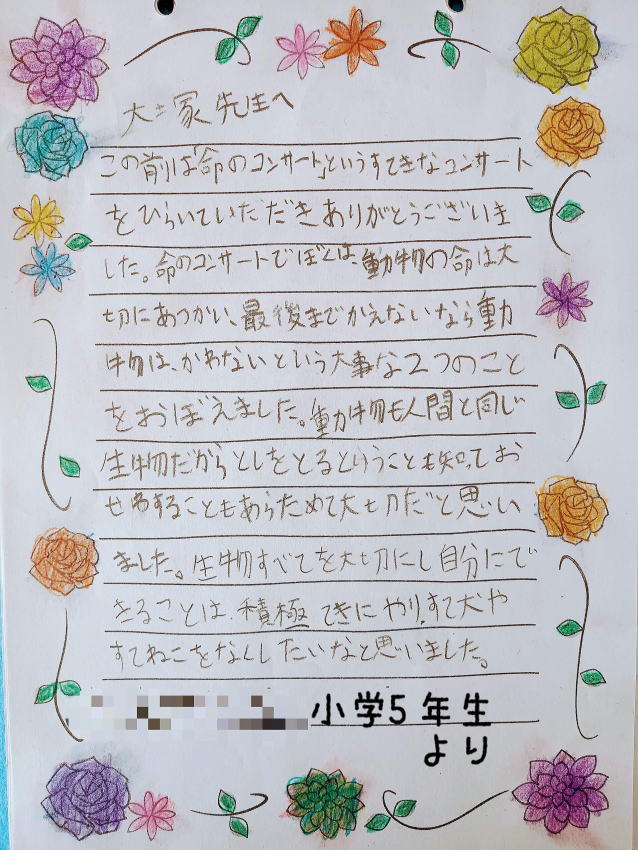 大塚先生へ
この前は「命のコンサート」というすてきなコンサート
をひらいていただだきありがとうございま
した。命のコンサートでぼくは、動物の命は大
切にあつかい、最後までかえないなら動
物は、かわないという大事な2つのこと
をおぼえました。動物も人間と同じ
生物だからとしをとるということも知ってお
せわすることもあらためて大切だと思い
ました。生物すべてを大切にし自分にで
きることは、積極てきにやり、すて犬や
すてねこをなくしたいなと思いました。
小学5年生
より